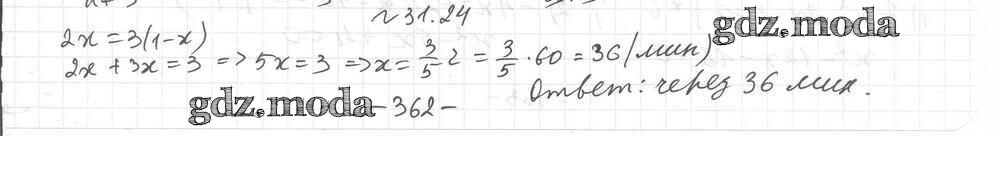 №31.24
gdz.moda
2x = 3(1-x)
2x + 3x = 3 => 5x = 3 => x = 3/5 г = 3/5 · 60 = 36 (мин)
Ответ: через 36 мин.
gdz.moda
- 362 -